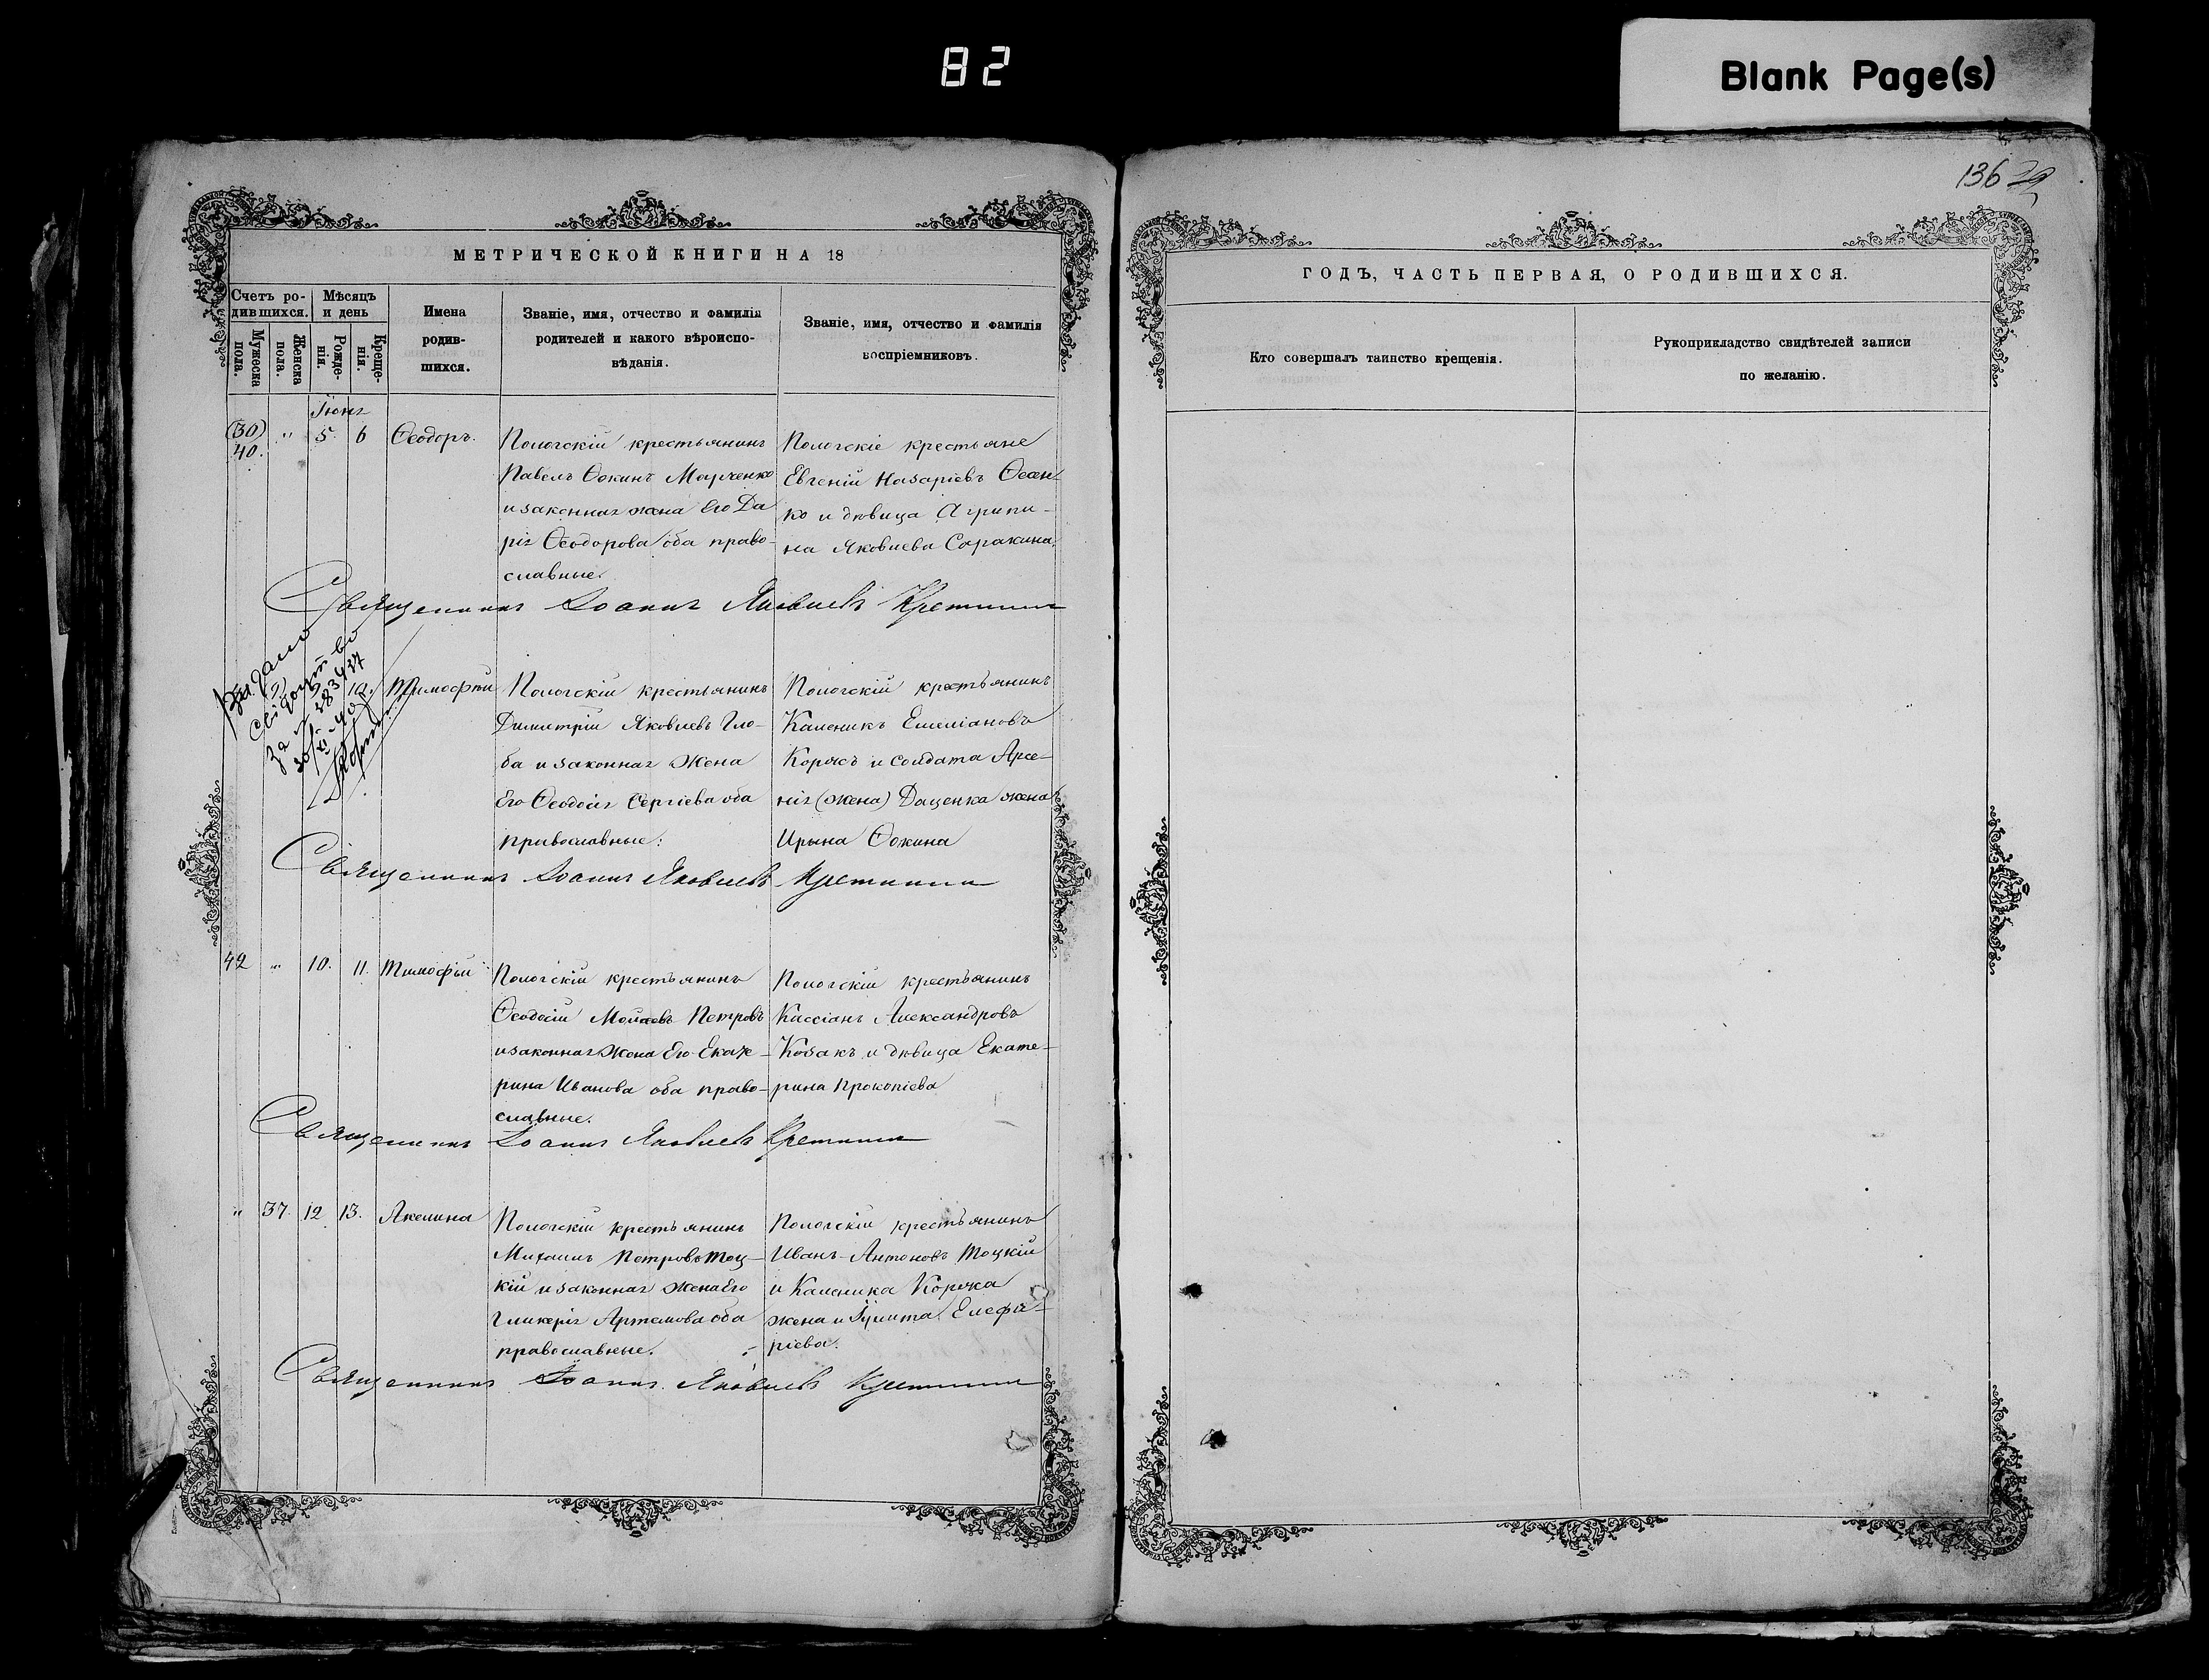 82
Blank Page(s)
136 29
МЕТРИЧЕСКОЙ КНИГИ НА 18
Счетъ ро-
дившихся.
Мѣсяцъ
и день
Мужеска
пола.
Женска
пола.
Рожде-
нія.
Креще-
нія.
Имена
родив-
шихся.
Званіе, имя, отчество и фамилія
родителей и какого вѣроиспо-
вѣданія.
Званіе, имя, отчество и фамилія
воспріемниковъ.
Іюня
(30)
40. " 5. 6 Ѳеодоръ.
Пологскій крестьянинъ
Павелъ Ѳокинъ Марченко
и законная жена Его Да
рія Ѳеодорова оба право-
славные.
Пологскіе крестьяне
Евгеній Назаріевъ Ѳесен-
ко и дѣвица Агрипи-
на Яковлева Саракина.
Священникъ Іоаннъ Яковлевъ
Видано
свідоцтво
за №
Тимофѣй
Пологскій крестьянинъ
Димитрій Яковлевъ Гло-
ба и законная Жена
Его Ѳеодосія Сергіева оба
православные:
Пологскій крестьянинъ
Каленикъ Емеліановъ
Коржъ и солдата Арсе-
нія (жена) Даценка жена
Ирына Ѳокина
Священникъ Іоаннъ Яковлевъ
42 " 10. 11. Тимофѣй
Пологскій крестьянинъ
Ѳеодосій Петровъ
и законная Жена Его Екате-
рина Иванова оба право-
славные.
Пологскій крестьянинъ
Кассіанъ Александровъ
Козакъ и дѣвица Екате-
рина Прокопіева
Священникъ Іоаннъ Яковлевъ
" 37. 12 13. Акелина
Пологскій крестьянинъ
Михаилъ Петровъ Тоц-
кій и законная жена Его
Гликерія Артемова оба
православные.
Пологскій крестьянинъ
Иванъ Антоновъ Тоцкій
и Каленика Коржа
жена Іулита Елефѣ-
ріева.
Священникъ Іоаннъ Яковлевъ
ГОДЪ, ЧАСТЬ ПЕРВАЯ, О РОДИВШИХСЯ.
Кто совершалъ таинство крещенія.
Рукоприкладство свидѣтелей записи
по желанію.